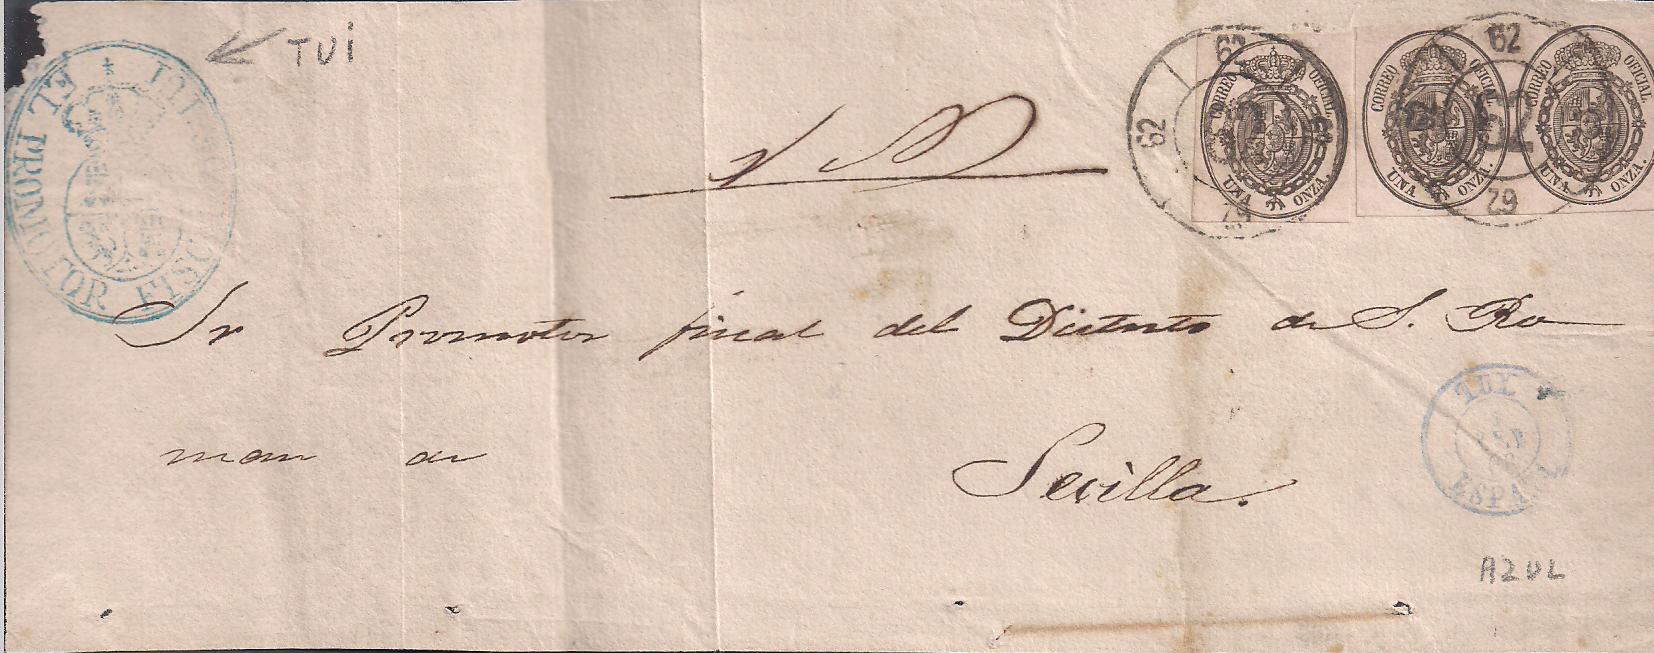 TUI
EL PROMOTOR FISC
62 62 62
CORREO OFICIAL UNA ONZA.
62 62 62
CORREO OFICIAL UNA ONZA.
CORREO OFICIAL UNA ONZA.
Sr Promotor fiscal del Distrito de S. Ro
man de
Sevilla.
TUY
ESPAÑA
AZUL